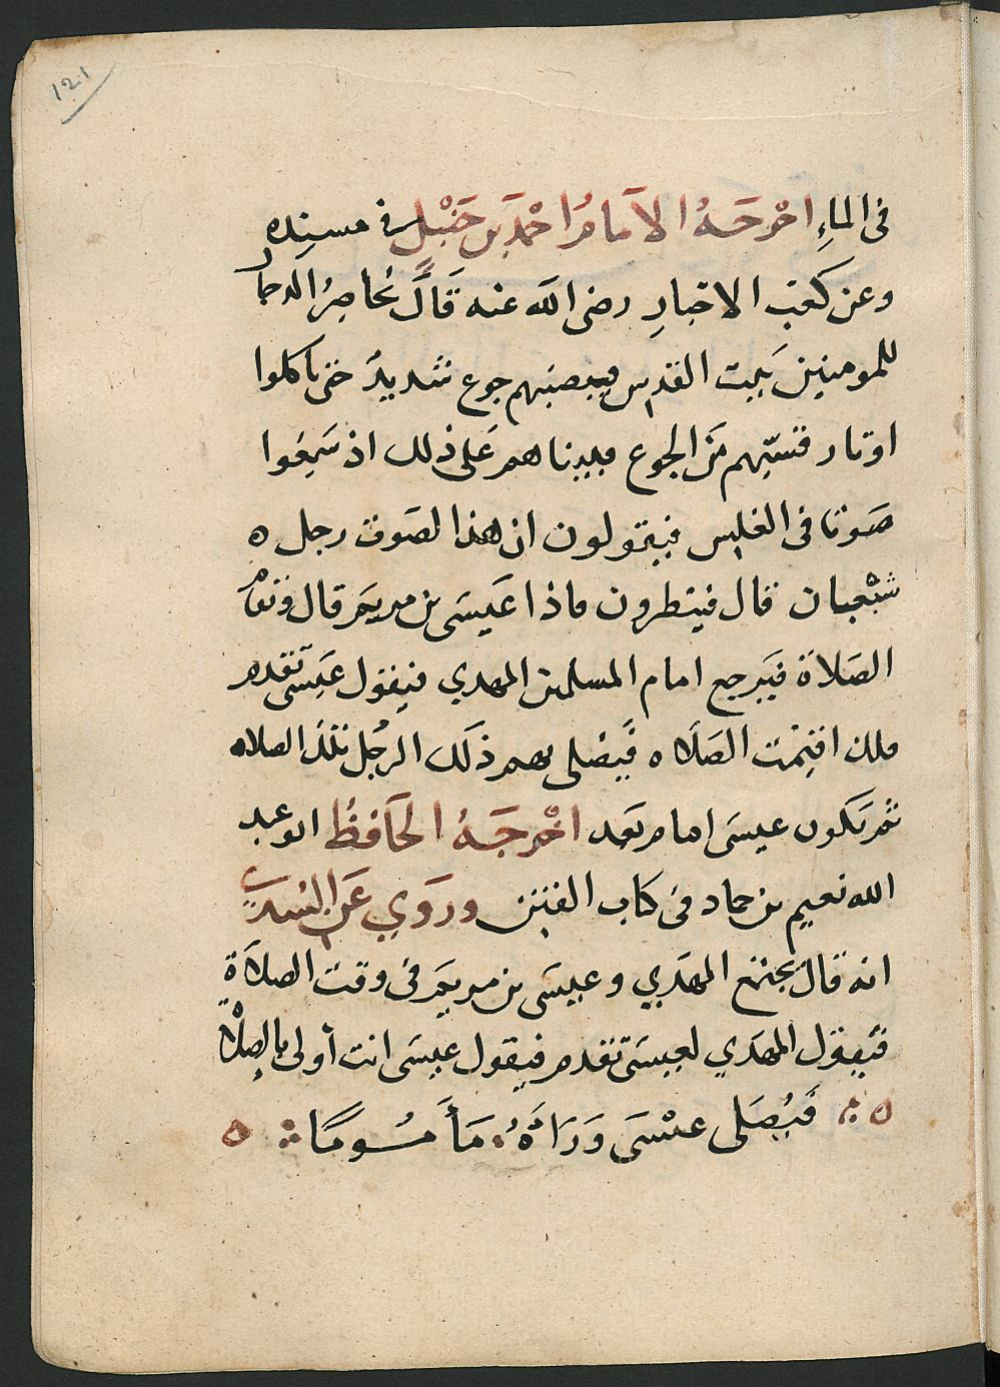 121
فى الماءِ اخرَجَهُ الاَمامُ احْمَدَ بن حَنبْلٍ فى مسنِده
وعن كعَبْ الاحبارِ رضى الله عنه قَالَ يُحاصِرُ الدجال
للمومنين بَيت القدس فيصبهم جوع شديدٌ حتى ياكلوا
اوتار قسيّهم مَن الجوع فبينا هم عَلى ذلك اذ سَمِعُوا
صَوتا فى الغلسِ فيقولون ان هذا لصَوت رجل ه
شبْعَان قال فينظرون فاذا عَيسَى بن مريَم قال وتقامُ
الصَلاَة فيَرجع امام المسلمين المهدي فيقول عَيسَى تقدم
فلك اقيمْت الصَلاه فَيصْلى بهم ذلَك الرجُل تلكَ الصلاه
ثم يَكون عيسَى امام بَعد اخْرجَهُ الحَافظُ ابو عبد
الله نعيم بن حماد فى كتاب الفتن ورَوَي عَن السُدّي
انه قالَ يجتمع المهَدي وعيسَى بن مريَم فى وقت الصلاَةِ
فَيقول المهَدي لعيسَى تقدم فيقول عيسَى انت أولى بالصلاْة
ه فَيُصَلى عيْسَى وَرَاَهُ مَأَمُومًا ه